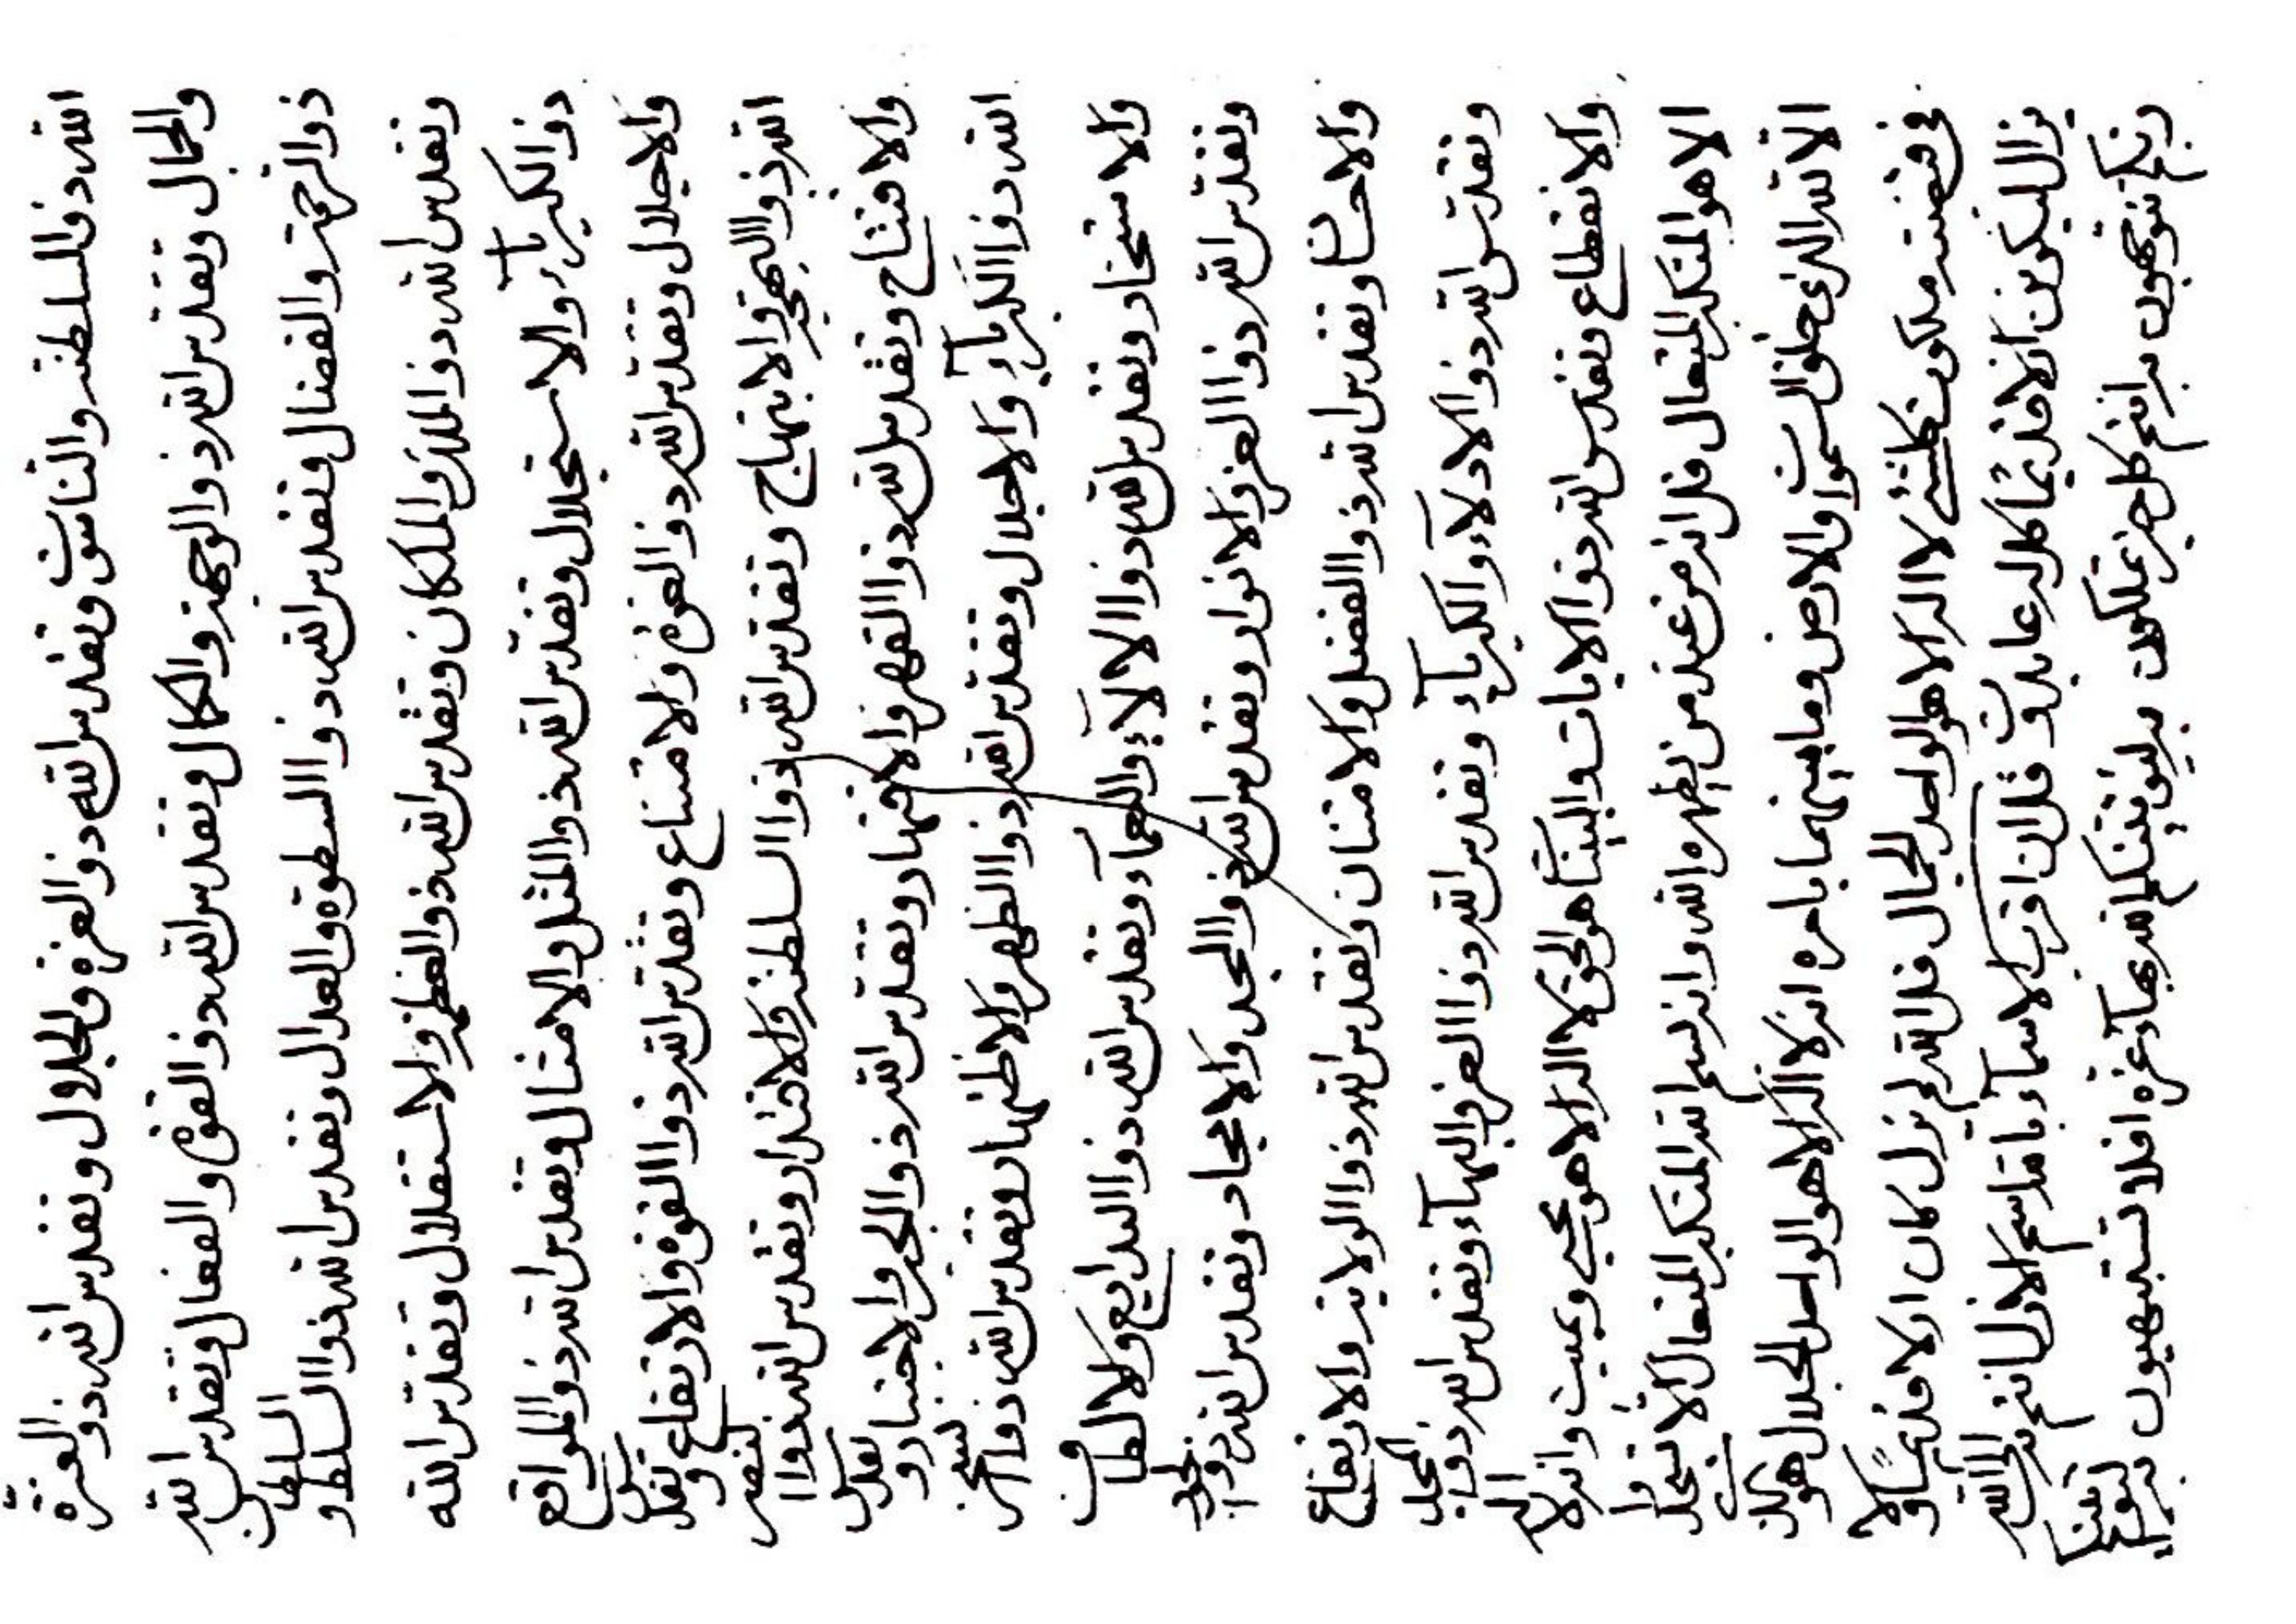 الله ذو السلطنة والناسوت وتقدس الله ذو العزة والجلال وتقدس الله ذو العزة
والجمال وتقدس الله ذو الوجهة والكمال وتقدس الله ذو القوة والفعال وتقدس الله
ذو الرحمة والفضال وتقدس الله ذو السطوة والعدال وتقدس الله ذو السلط و السلطان
وتقدس الله ذو الملك والملكان وتقدس الله ذو العظمة والاستقلال وتقدس الله
ذو الكبرياء والاستجلال وتقدس الله ذو المثل والامثال وتقدس الله ذو المواقع
والاجلال وتقدس الله ذو العزة والامتناع وتقدس الله ذو القوة والارتفاع وتقدس
الله ذو البهجة والابتهاج وتقدس الله ذو السلطنة والاقتدار وتقدس الله ذو النصر
والافتتاح وتقدس الله ذو القهر والاقتهار وتقدس الله ذو الجبر والاجتبار وتقدس
الله ذو الكبرياء والاجلال وتقدس الله ذو الظهر والاظتهار وتقدس الله ذو السخر
والاستخار وتقدس الله ذو الالاء والنعماء وتقدس الله ذو البدايع والالطاف
وتقدس الله ذو العز والانوار وتقدس الله ذو المجد والامجاد وتقدس الله ذو الجود
والاحسان وتقدس الله ذو الفضل والامتنان وتقدس الله ذو الولاية والارتفاع
وتقدس الله ذو الادلاء والكبرياء وتقدس الله ذو العز والبهاء وتقدس الله ذو المجد
والانقطاع وتقدس الله ذو الايات والبينات هو الحق لا اله الا هو يحيي ويميت وانه لا اله
الا هو المتكبر المتعال قل انه من عند من يظهره الله وانه لسم الله المتكبر المتعال الا
الا الله الذي خلق السموات والارض وما بينهما بامره انه لا اله الا هو الواحد الجلال هو الذي
في قبضته ملكوت كلشئ لا اله الا هو الواحد الجمال قل الله لم يزل كان الاها قديما ولا
يزال ليكونن الاها قديما كل له عابدون قل ان اقرب الاسماء باقد سم الاول انتم الى الله
ربكم تتوجهون به انتم كل خير تملكون به ليوفينكم الله بهاء عزه افلا تستنبهون به